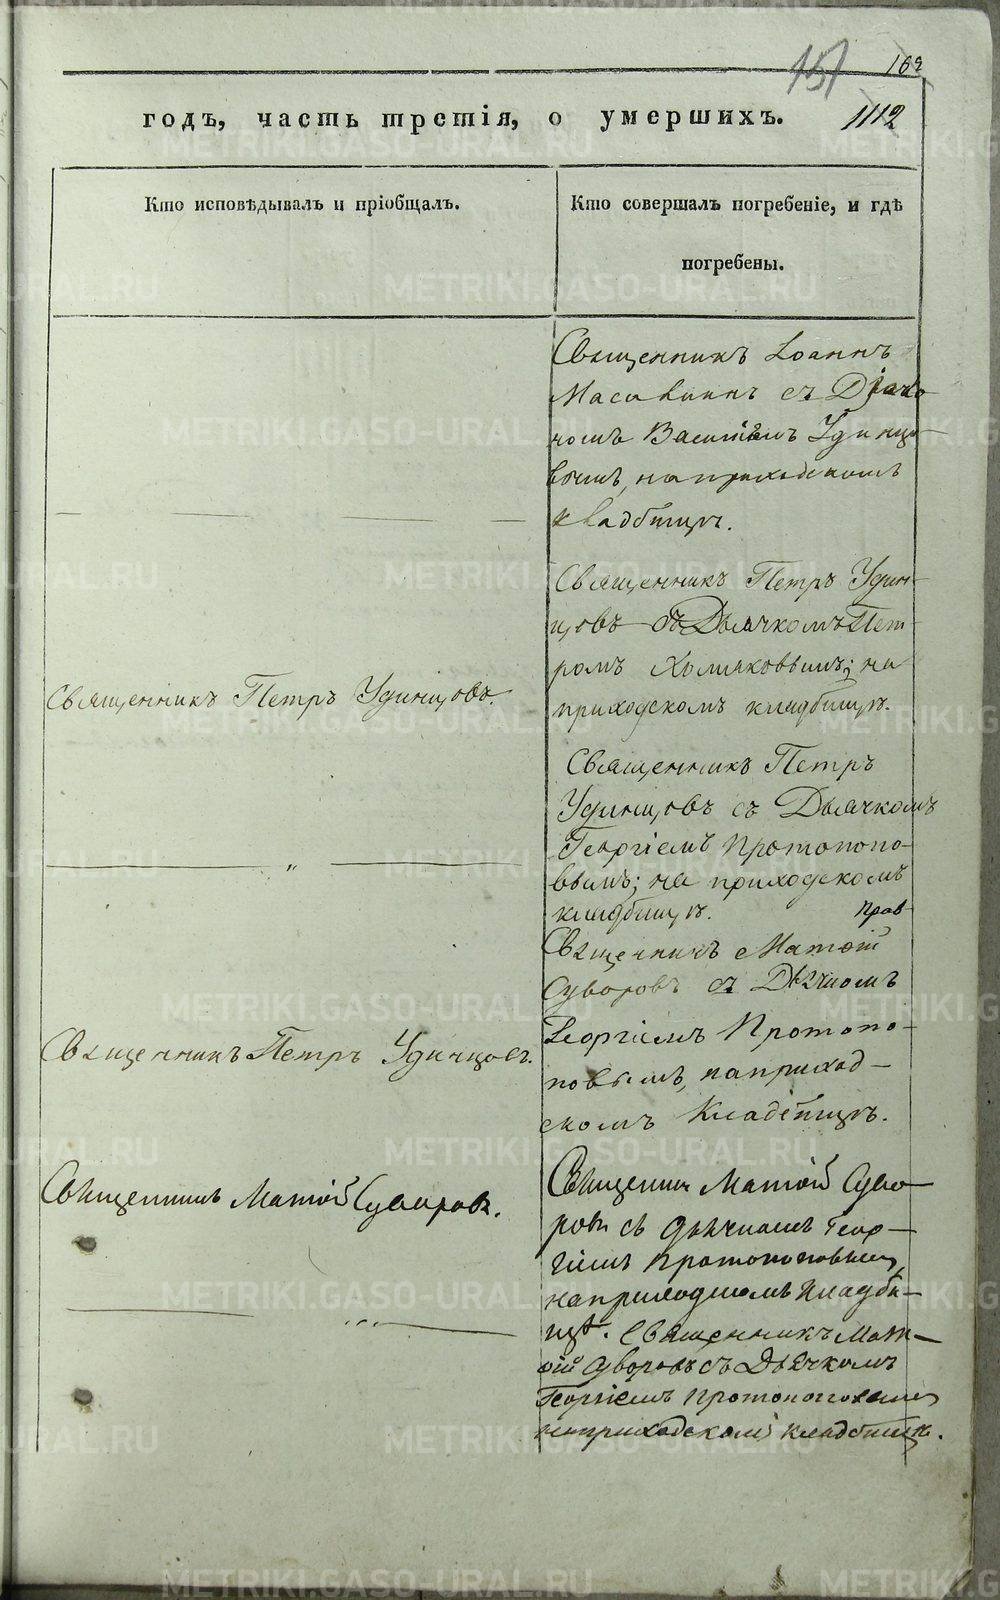 151 162
годъ, часть третія, о умершихъ. 1112
Кто исповѣдывалъ и пріобщалъ.
Кто совершалъ погребеніе, и гдѣ
погребены.
Священникъ Іоаннъ
съ Дьячко
номъ Василіемъ Удинцо
вымъ, на приходскомъ
кладбищѣ.
Священникъ Петръ Удин-
цовъ съ Дьячкомъ Пет-
ромъ Хомяковымъ; на
приходскомъ кладбищѣ.
Священникъ Петръ Удинцовъ.
Священникъ Петръ
Удинцовъ съ Дьячкомъ
Георгіемъ Протопопо-
вымъ; на приходскомъ
кладбищѣ.
"
Священникъ Матѳій
Суворовъ съ Дьячкомъ
Георгіемъ Протопо-
повымъ, на приход-
скомъ кладбищѣ.
Священникъ Петръ Удинцовъ.
Священникъ Матѳій Суво-
ровъ съ дьячкомъ Геор-
гіемъ Протопоповымъ,
на приходскомъ кладби-
щѣ. Священникъ Мат-
ѳій Суворовъ съ Дьячкомъ
Георгіемъ Протопоповымъ
на приходскомъ кладбищѣ.
Священникъ Матѳій Суворовъ.
METRIKI.GASO-URAL.RU